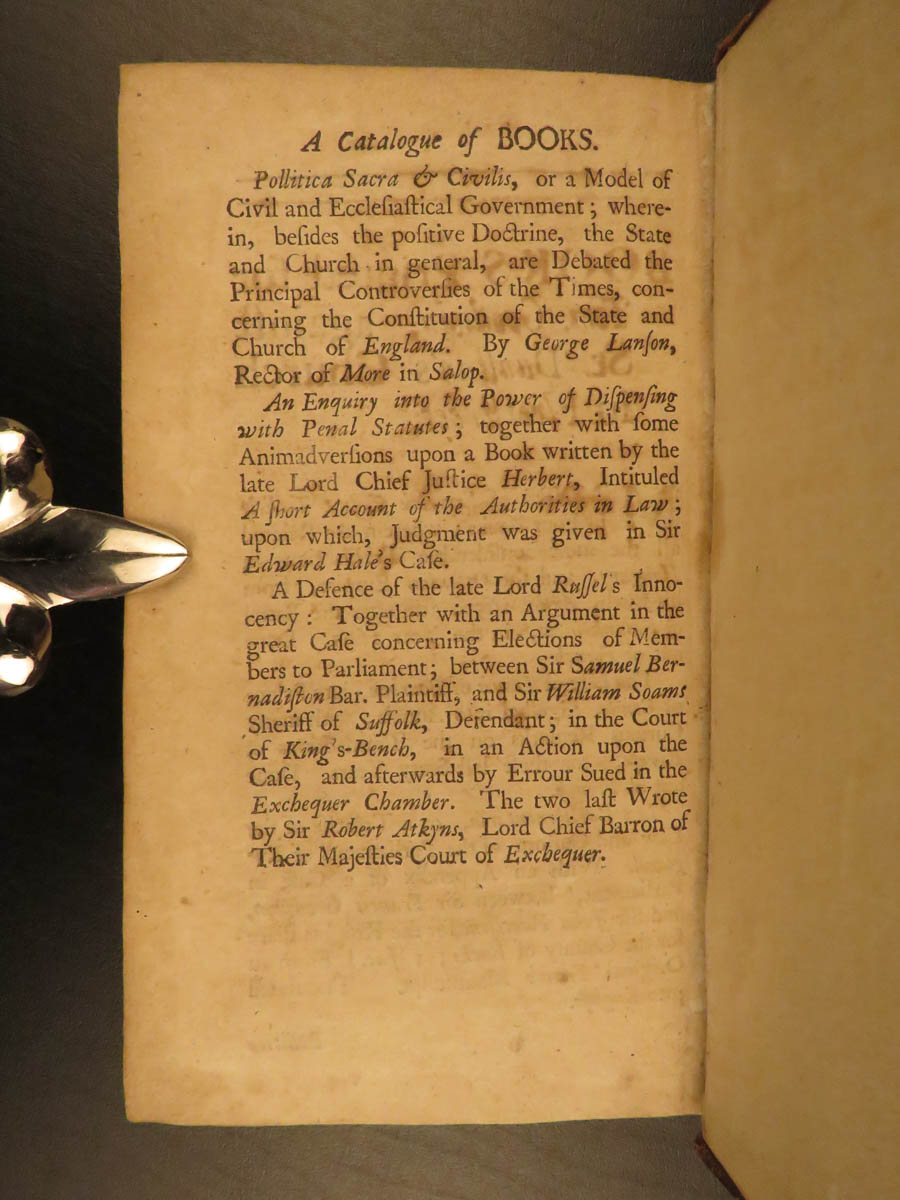 A Catalogue of BOOKS.
Pollitica Sacra & Civilis, or a Model of
Civil and Eccleſiaſtical Government; where-
in, beſides the poſitive Doctrine, the State
and Church in general, are Debated the
Principal Controverſies of the Times, con-
cerning the Conſtitution of the State and
Church of England. By George Lanſon,
Rector of More in Salop.
An Enquiry into the Power of Diſpenſing
with Penal Statutes; together with ſome
Animadverſions upon a Book written by the
late Lord Chief Juſtice Herbert, Intituled
A ſhort Account of the Authorities in Law;
upon which, Judgment was given in Sir
Edward Hale's Caſe.
A Defence of the late Lord Ruſſel's Inno-
cency: Together with an Argument in the
great Caſe concerning Elections of Mem-
bers to Parliament; between Sir Samuel Ber-
nadiſton Bar. Plaintiff, and Sir William Soams
Sheriff of Suffolk, Defendant; in the Court
of King's-Bench, in an Action upon the
Caſe, and afterwards by Errour Sued in the
Exchequer Chamber. The two laſt Wrote
by Sir Robert Atkyns, Lord Chief Barron of
Their Majeſties Court of Exchequer.